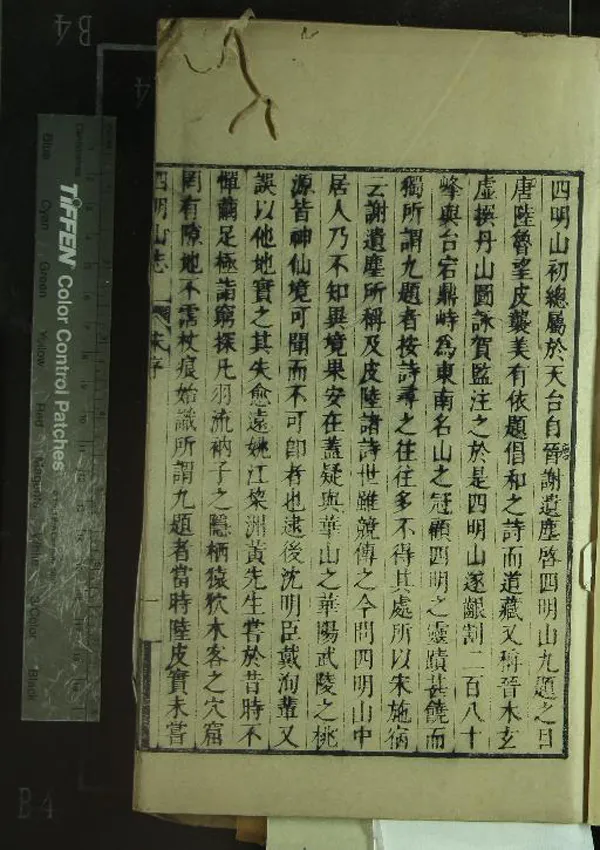 四明山初總屬於天台自晉謝遺塵啓四明山九題之目
唐陸魯望皮襲美有依題倡和之詩而道藏又稱晉木玄
虛撰丹山圖詠賀監注之於是四明山遂齦割二百八十
峰與台宕鼎峙為東南名山之冠顧四明之靈蹟甚饒而
獨所謂九題者按詩尋之往往多不得其處所以宋施宿
云謝遺塵所稱及皮陸諸詩世雖競傳之今問四明山中
居人乃不知異境果安在蓋疑與華山之華陽武陵之桃
源皆神仙境可聞而不可卽者也逮後沈明臣戴洵輩又
誤以他地實之其失愈遠姚江棃洲黃先生嘗於昔時不
憚繭足極詣窮探凡羽流衲子之隱栖猿狖木客之穴窟
罔有隙地不霑杖痕始識所謂九題者當時陸皮實未嘗
四明山志 宋序
TIFFEN Color Control Patches
Blue Cyan Green Yellow Red Magenta White 3/Color Black
Centimetres
B4
B4
4